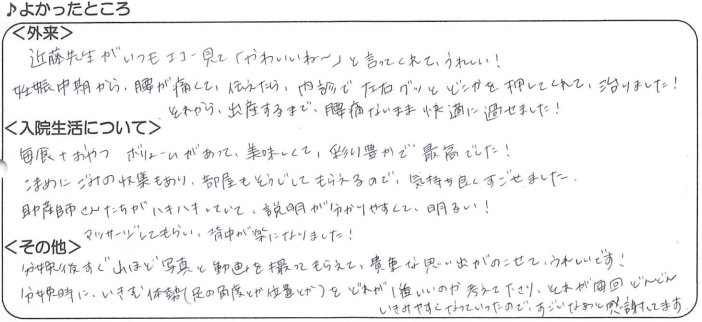 ♪よかったところ
<外来>
近藤先生がいつもエコー見て「かわいいね〜」と言ってくれて、うれしい!
妊娠中期から、腰が痛くて、伝えたら、内診で左右グッとどこかを押してくれて、治りました!
それから、出産するまで、腰痛ないまま快適に過せました!
<入院生活について>
毎食+おやつ ボリュームがあって、美味しくて、彩り豊かで最高でした!
こまめにごみの収集もあり、部屋もそうじしてもらえるので、気持ち良くすごせました.
助産師さんたちがハキハキしていて、説明が分かりやすくて、明るい!
マッサージしてもらい、背中が楽になりました!
<その他>
分娩後すぐ山ほど写真と動画を撮ってもらえて、貴重な思い出がのこせて、うれしいです!
分娩時に、いきむ体勢(足の角度とか位置とか)をどれが1番いいのか考えて下さり、それが毎回どんどん
いきみやすくなっていったので、すごいなあと感謝してます